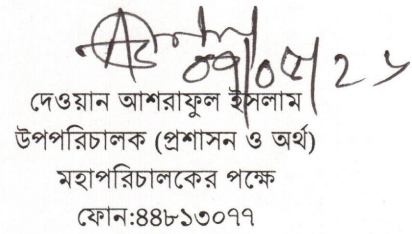 ০৭/০৫/২৬
দেওয়ান আশরাফুল ইসলাম
উপপরিচালক (প্রশাসন ও অর্থ)
মহাপরিচালকের পক্ষে
ফোন:৪৪৮১৩০৭৭